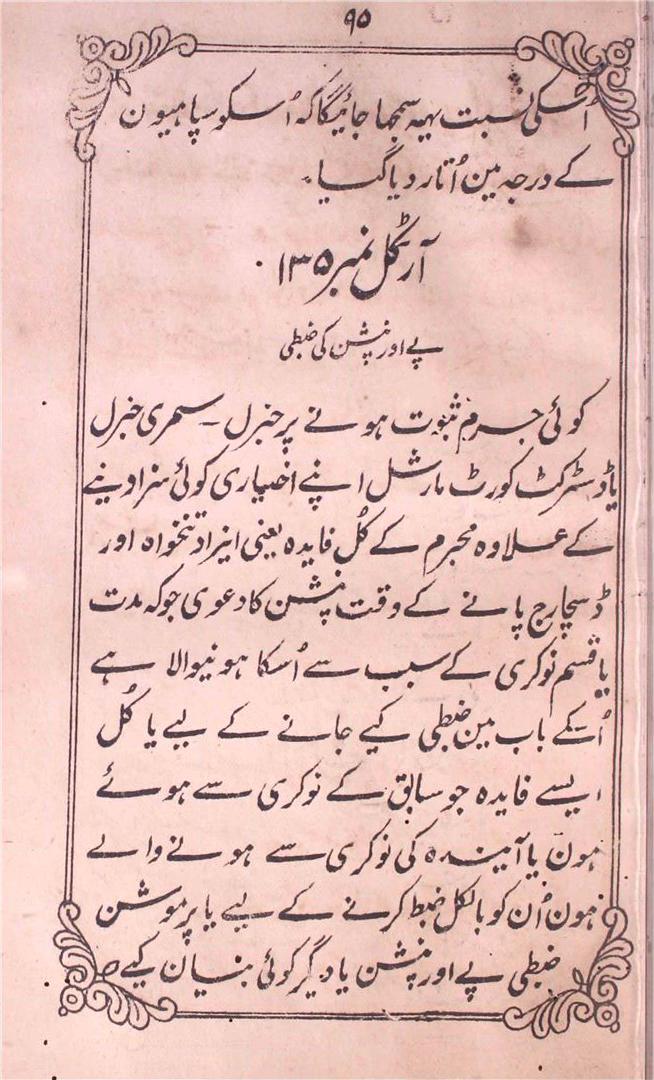 ٩٥
اُسکی نسبت یہہ سمجھا جائیگا کہ اُسکو سپاہیون
کے درجہ مین اُتار دیا گیا۔
آرٹکل نمبر ۱۳۵۔
پے اور پنشن کی ضبطی
کوئی جرم ثبوت ہونے پر جنرل۔ سمری جنرل
یا ڈسٹرکٹ کورٹ مارشل اپنے اختیاری کوئی سزا دینے
کے علاوہ مجرم کے کُل فایدہ یعنی ایزاد تنخواہ اور
ڈسچارج پانے کے وقت پنشن کا دعوی جو کہ مدت
یا قسم نوکری کے سبب سے اُسکا ہونیوالا ہے
اُسکے باب مین ضبطی کیے جانے کے لیے یا کُل
ایسے فایدہ جو سابق کے نوکری سے ہوئے
ہون یا آیندہ کی نوکری سے ہونے والے
ہون اُن کو بالکل ضبط کرنے کے لیے یا پرموشن
ضبطی پے اور پنشن یا دیگر کوئی بنیان کیے